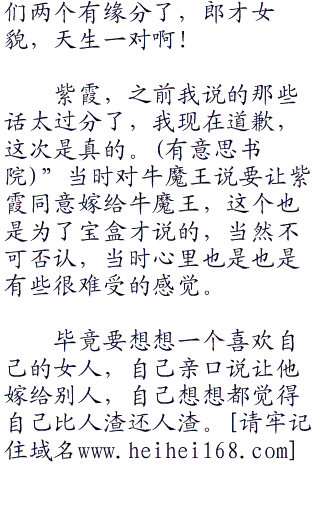 们两个有缘分了，郎才女
貌，天生一对啊！
紫霞，之前我说的那些
话太过分了，我现在道歉，
这次是真的。(有意思书
院)”当时对牛魔王说要让紫
霞同意嫁给牛魔王，这个也
是为了宝盒才说的，当然不
可否认，当时心里也是也是
有些很难受的感觉。
毕竟要想想一个喜欢自
己的女人，自己亲口说让他
嫁给别人，自己想想都觉得
自己比人渣还人渣。[请牢记
住域名www.heihei168.com]